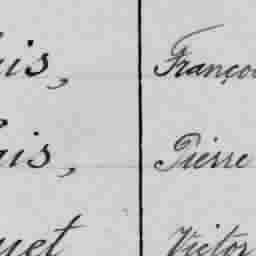 is, Franço
is, Pierre
uet Victor